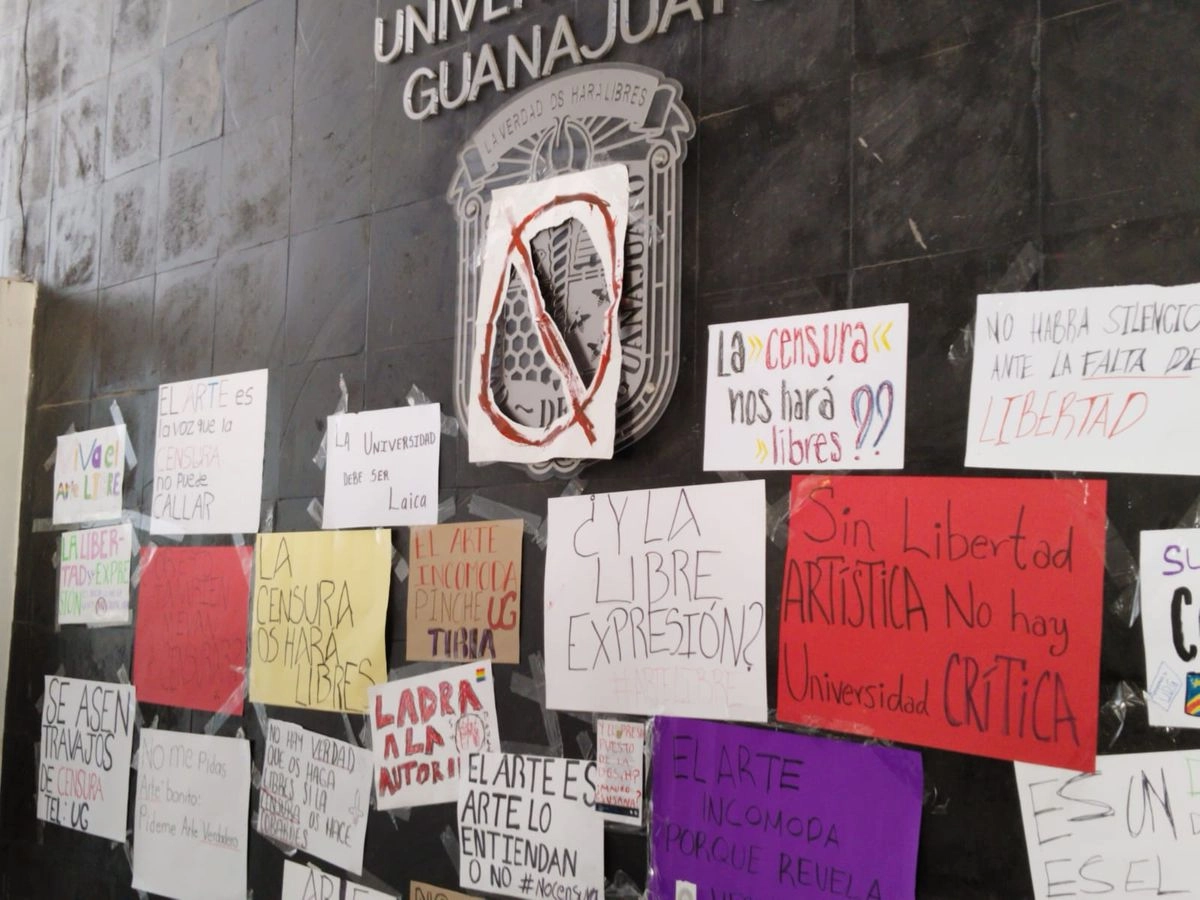 GUANAJUATO
LA VERDAD OS HARA LIBRES
GUANAJUATO
DE
La »censura«
nos hará
»libres ??
NO HABRA SILENCIO
ANTE LA FALTA DE
LIBERTAD
EL ARTE es
la voz que la
CENSURA
no puede
CALLAR
LA UNIVERSIDAD
DEBE SER
Laica
Viva el
Arte LIBRE
LA LIBER-
TAD EXPRE
SIÓN
LA
CENSURA
OS HARÁ
LIBRES
EL ARTE
INCOMODA
PINCHE UG
TIBIA
¿Y LA
LIBRE
EXPRESIÓN?
#ARTELIBRE
Sin Libertad
ARTÍSTICA No hay
Universidad CRÍTICA
SE ASEN
TRAVAJOS
DE CENSURA
TEL: UG
No me Pidas
Arte bonito:
Pideme Arte Verdadero
NO HAY VERDAD
QUE OS HAGA
LIBRES SI LA
CENSURA OS HACE
COBARDES
LADRA
A LA
AUTORI
EL ARTE ES
ARTE LO
ENTIENDAN
O NO #NoCensura
EL ARTE
INCOMODA
PORQUE REVELA
ES UN
ES EL